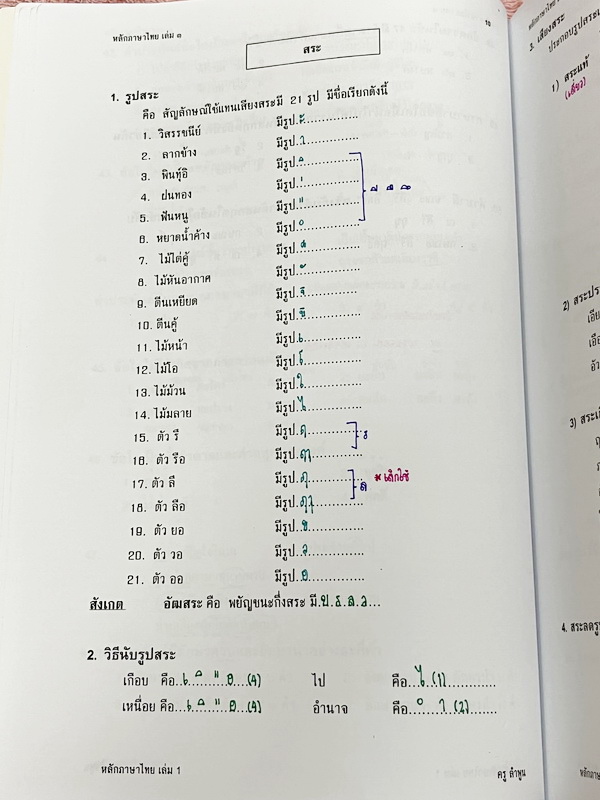 หลักภาษาไทย เล่ม ๑
10
สระ
1. รูปสระ
คือ สัญลักษณ์ใช้แทนเสียงสระมี 21 รูป มีชื่อเรียกดังนี้
1. วิสรรชนีย์ มีรูป ะ
2. ลากข้าง มีรูป า
3. พินทุ์อิ มีรูป ิ
4. ฝนทอง มีรูป ่
5. ฟันหนู มีรูป "
ี ื ึ
6. หยาดน้ำค้าง มีรูป ํ
7. ไม้ไต่คู้ มีรูป ็
8. ไม้หันอากาศ มีรูป ั
9. ตีนเหยียด มีรูป ุ
10. ตีนคู้ มีรูป ู
11. ไม้หน้า มีรูป เ
12. ไม้โอ มีรูป โ
13. ไม้ม้วน มีรูป ใ
14. ไม้มลาย มีรูป ไ
15. ตัว รึ มีรูป ฤ
ร
16. ตัว รือ มีรูป ฤๅ
17. ตัว ลึ มีรูป ฦ
ล * เลิกใช้
18. ตัว ลือ มีรูป ฦๅ
19. ตัว ยอ มีรูป ย
20. ตัว วอ มีรูป ว
21. ตัว ออ มีรูป อ
สังเกต อัฒสระ คือ พยัญชนะกึ่งสระ มี ย ร ล ว
2. วิธีนับรูปสระ
เกือบ คือ เ ิ " อ (4) ไป คือ ไ (1)
เหนื่อย คือ เ ิ " อ (4) อำนาจ คือ ํ า (2)
หลักภาษาไทย เล่ม 1
ครู ลำพูน
3. เสียงสระ
ประกอบรูปสระ
1) สระแท้
(เดี่ยว)
2) สระประ
เอีย
เอือ
อัว
3) สระเกิ
4. สระลดรูป
หลักภาษา